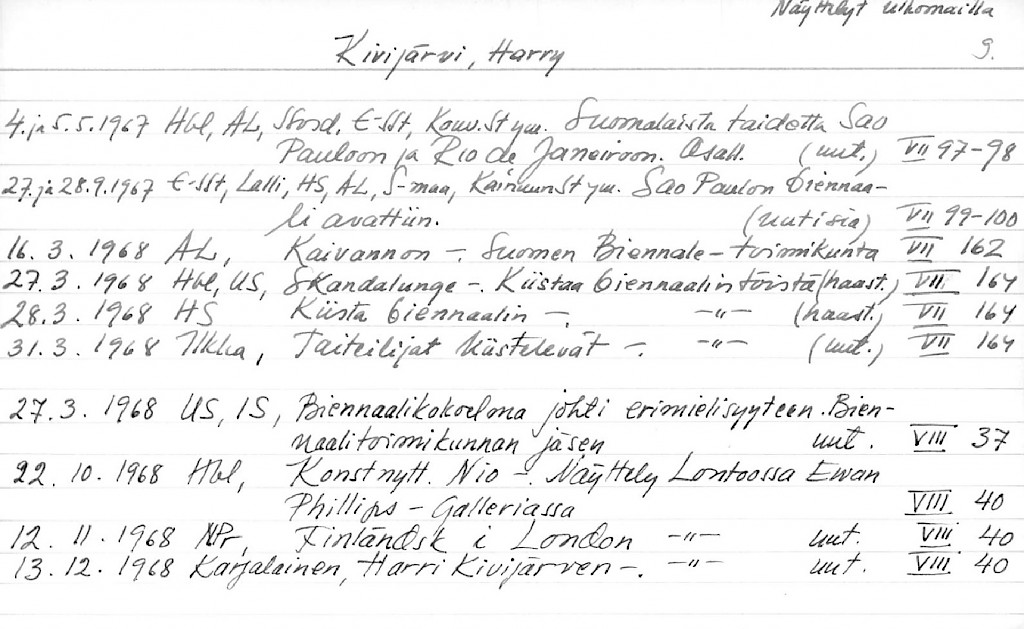 Näyttelyt ulkomailla
Kivijärvi, Harry 9.
4. ja 5.5.1967 Hbl, AL, Sosd, E-SSt, Kouv.St ym. Suomalaista taidetta Sao
Pauloon ja Rio de Janeiroon. Osall. (uut.) VII 97-98
27. ja 28.9.1967 E-SSt, Lalli, HS, AL, S-maa, KainuunSt ym. Sao Paulon biennaa-
li avattiin. (uutisia) VII 99-100
16. 3. 1968 AL, Kaivannon -. Suomen Biennale-toimikunta VII 162
27. 3. 1968 Hbl, US, Skandalunge -. Kiistaa biennaalin töistä (haast.) VII 164
28.3. 1968 HS Kiista biennaalin -. -"- (haast.) VII 164
31. 3. 1968 Ilkka, Taiteilijat kiistelevät -. -"- (uut.) VII 164
27. 3. 1968 US, IS, Biennaalikokoelma johti erimielisyyteen. Bien-
naalitoimikunnan jäsen uut. VIII 37
22. 10. 1968 Hbl, Konstnytt. Nio -. Näyttely Lontoossa Ewan
Phillips-Galleriassa VIII 40
12. 11. 1968 NPr, Finländsk i London -"- uut. VIII 40
13. 12. 1968 Karjalainen, Harri Kivijärven -. -"- uut. VIII 40